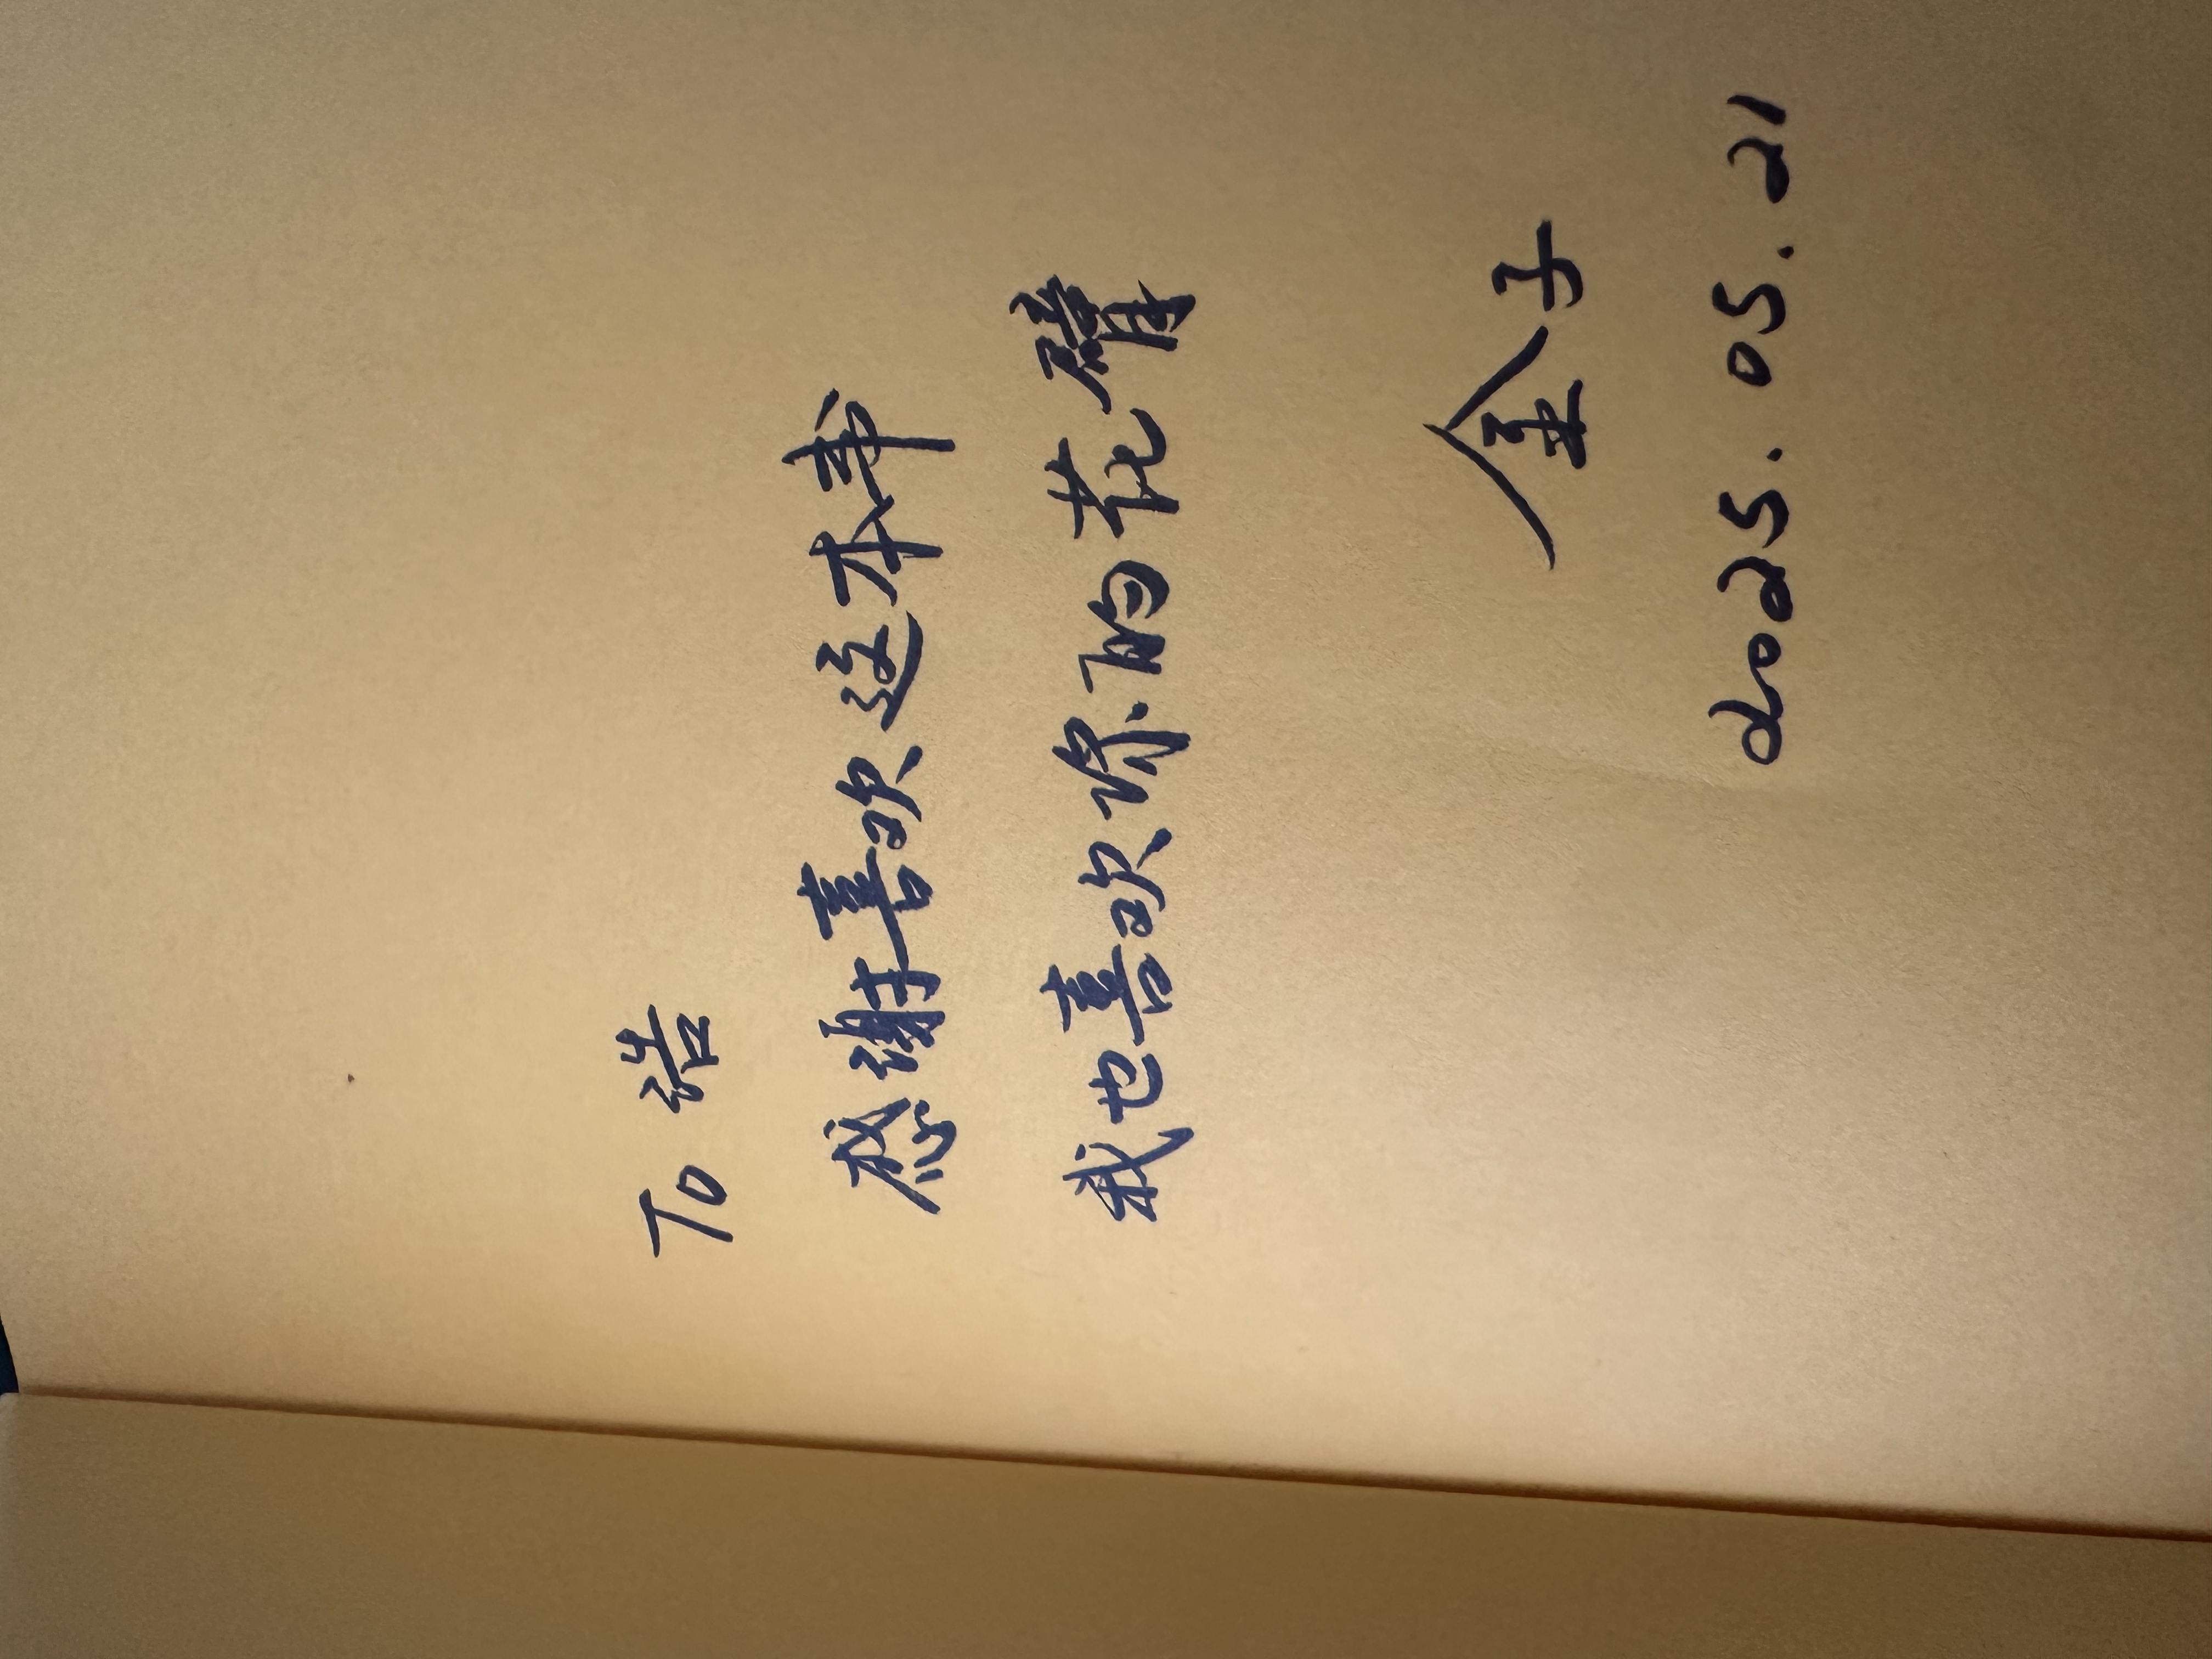 To 浩
感谢喜欢这本书
我也喜欢你的花臂
金子
2025.05.21